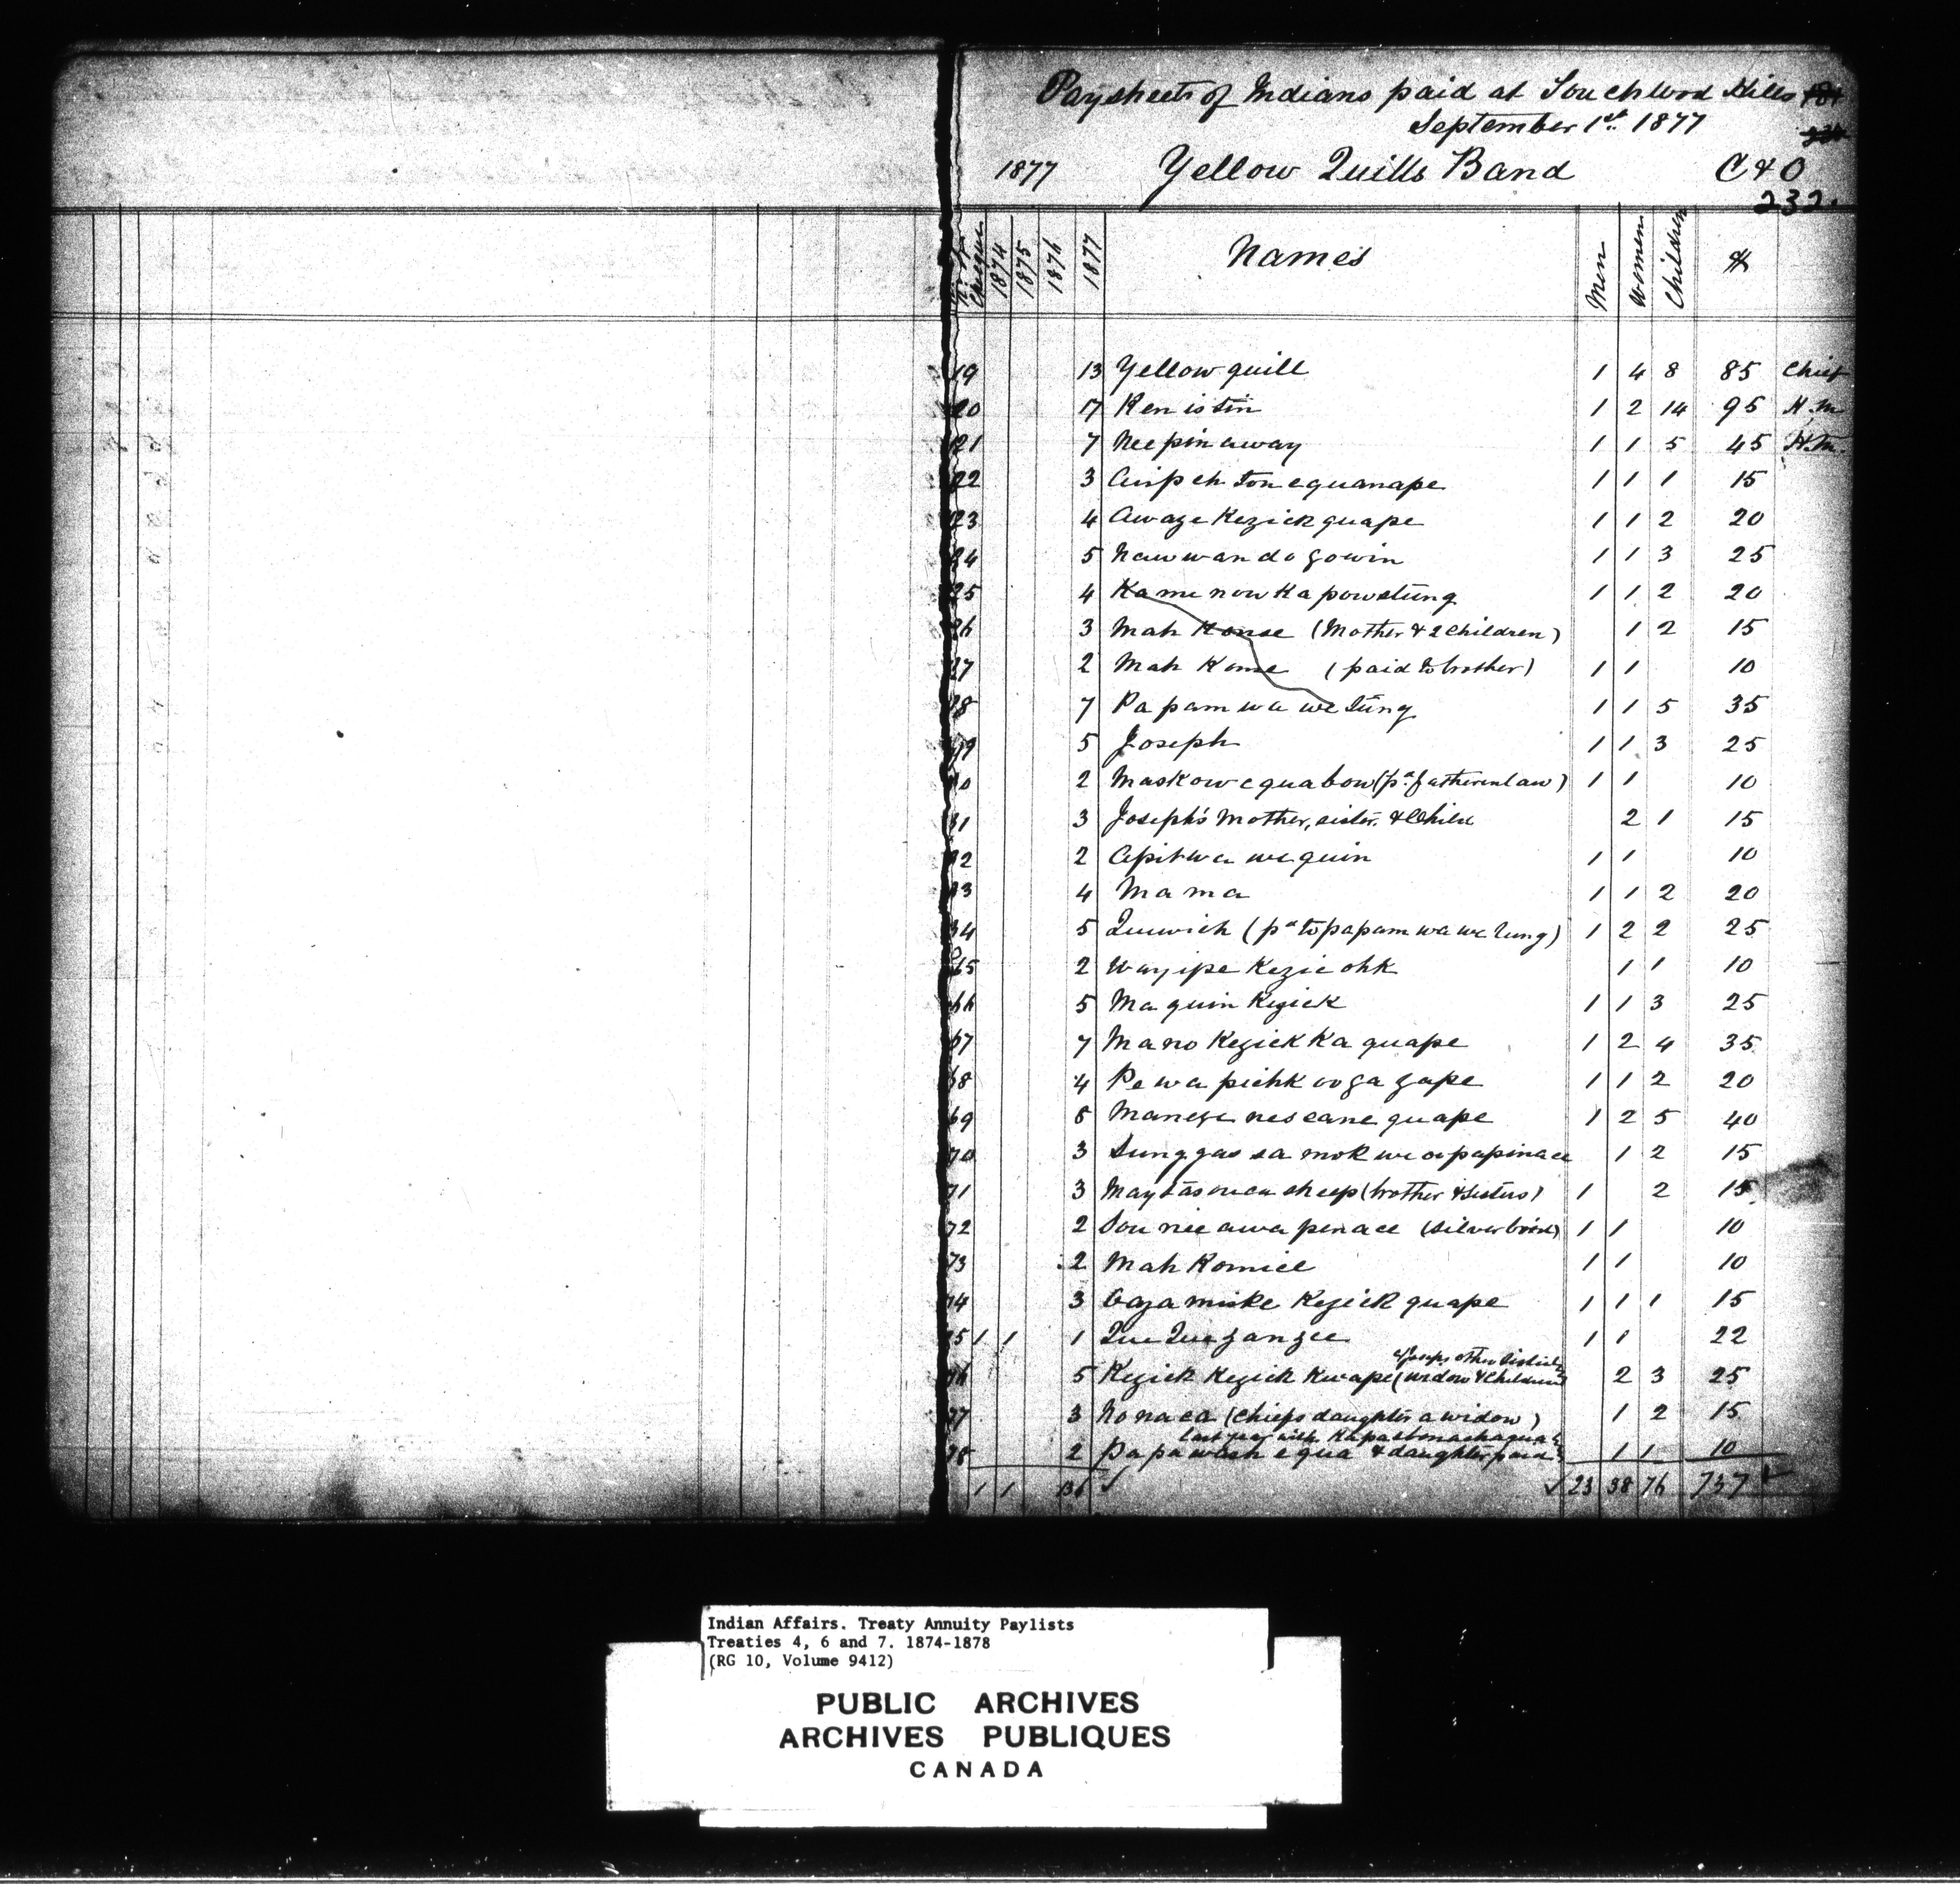 Paysheets of Indians paid at Touchwood Hills
September 1st 1877
1877 Yellow Quills Band C & O
232.
No of Cheque 1874 1875 1876 1877 Names Men Women Children $
19 13 Yellow quill 1 4 8 85 Chief
20 17 Kenistin 1 2 14 95 H.m
21 7 Neepinaway 1 1 5 45 H.m.
22 3 1 1 1 15
23 4 Awaze Kezick quape 1 1 2 20
24 5 Nawwandagowin 1 1 3 25
25 4 Kamenowkapowetung 1 1 2 20
26 3 Mah Konse (Mother & 2 Children) 1 2 15
27 2 Mah Konse (paid to brother) 1 1 10
28 7 Papamwawetung 1 1 5 35
29 5 Joseph 1 1 3 25
30 2 Maskowequabow (pd fatherinlaw) 1 1 10
31 3 Joseph's Mother, sister & Child 2 1 15
32 2 Apitwawequin 1 1 10
33 4 Mama 1 1 2 20
34 5 (pd to papamwawetung) 1 2 2 25
65 2 Wayipe Kezicohk 1 1 10
66 5 Maquin Kezick 1 1 3 25
67 7 Mano Kezick Kaquape 1 2 4 35
68 4 Pewapichkoogagape 1 1 2 20
69 8 1 2 5 40
70 3 1 2 15
71 3 (brother & sisters) 1 2 15
72 2 Souneeawapenace (Silver bird) 1 1 10
73 2 Mah Komice 1 1 10
74 3 Ogamiske Kezick quape 1 1 1 15
75 1 1 1 Que Quezanzee 1 1 22
76 5 Kezick Kezick Kwape (widow & Children) 2 3 25
77 3 Nonaca (Chiefs daughter a widow) 1 2 15
last year with
78 2 Papawash equa & daughter paid 1 1 10
1 1 136 23 38 76 737
Indian Affairs. Treaty Annuity Paylists
Treaties 4, 6 and 7. 1874-1878
(RG 10, Volume 9412)
PUBLIC ARCHIVES
ARCHIVES PUBLIQUES
CANADA